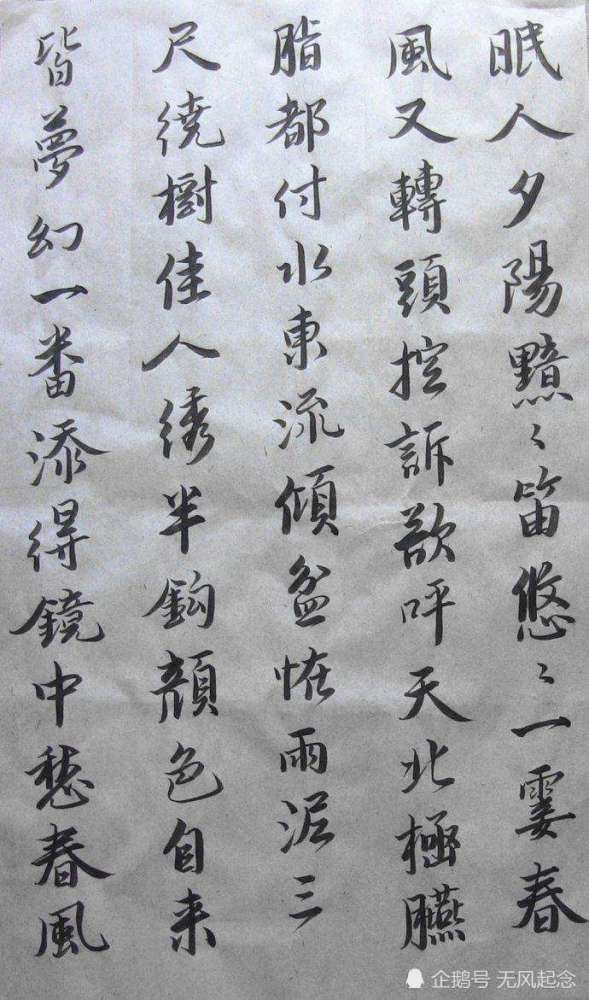 眠人夕陽黯〻笛悠〻一霎春
風又轉頭控訴欲呼天北極臙
脂都付水東流傾盆恠雨泥三
尺繞樹佳人綉半鈎顔色自来
皆夢幻一番添得鏡中愁春風
企鹅号 无风起念